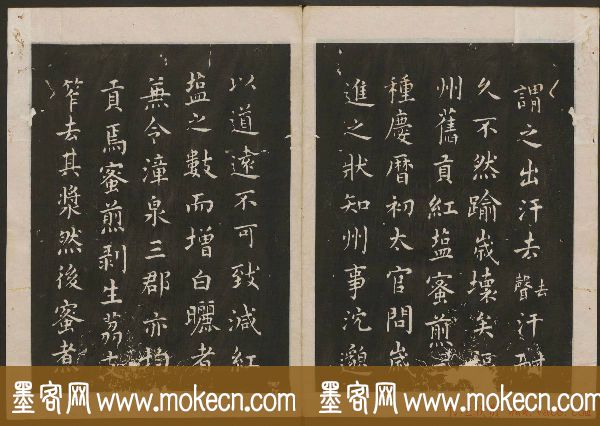 謂之出汗去聲去汗耐
久不然踰歲壞矣福
州舊貢紅塩蜜煎
種慶曆初太官問歲
進之狀知州事沈邈
以道遠不可致減紅
塩之數而增白曬者
兼令漳泉三郡亦均
貢焉蜜煎剥生荔
笮去其漿然後蜜煮
墨客网 www.mokecn.com
墨客网 www.mokecn.com